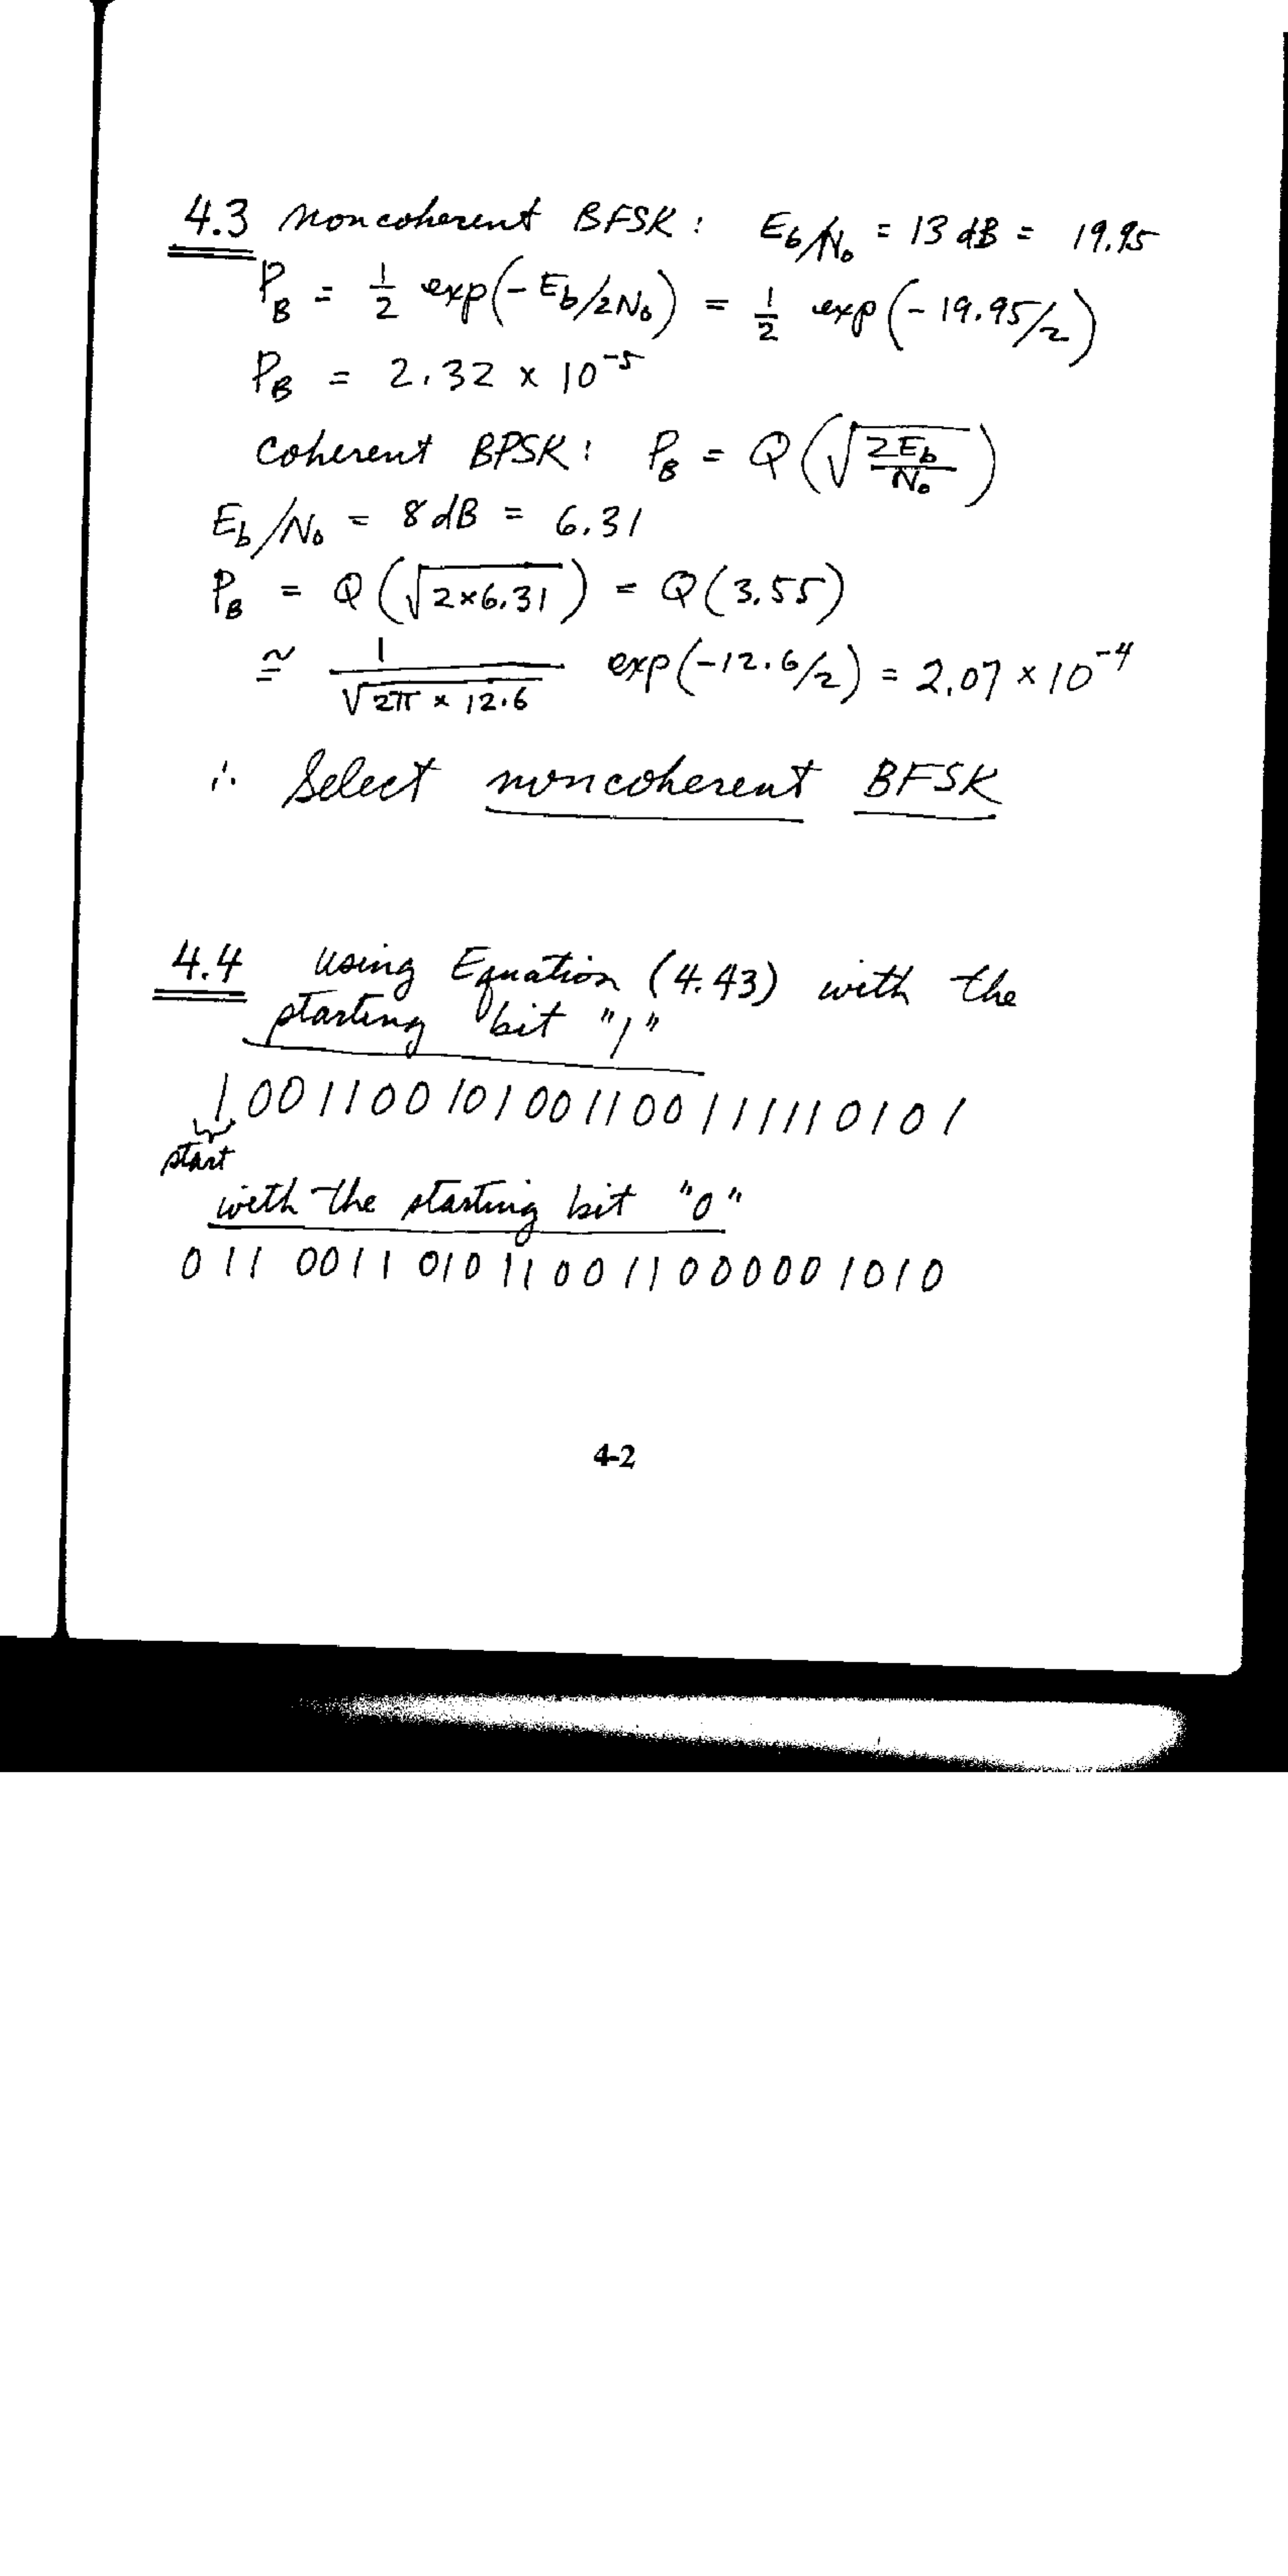 4.3 Noncoherent BFSK: Eb/N₀ = 13 dB = 19.95
P_B = 1/2 exp(-Eb/2N₀) = 1/2 exp(-19.95/2)
P_B = 2.32 × 10⁻⁵
Coherent BPSK: P_B = Q(√(2Eb/N₀))
Eb/N₀ = 8 dB = 6.31
P_B = Q(√(2×6.31)) = Q(3.55)
≅ 1/√(2π × 12.6) exp(-12.6/2) = 2.07 × 10⁻⁴
∴ Select noncoherent BFSK
4.4 Using Equation (4.43) with the
starting bit "1"
1 00 11 00 101 00 11 00 1 1 1 1 1 0 1 0 1
start
with the starting bit "0"
0 11 0011 010 11 00 11 0 0 0 0 0 1 0 1 0
4-2